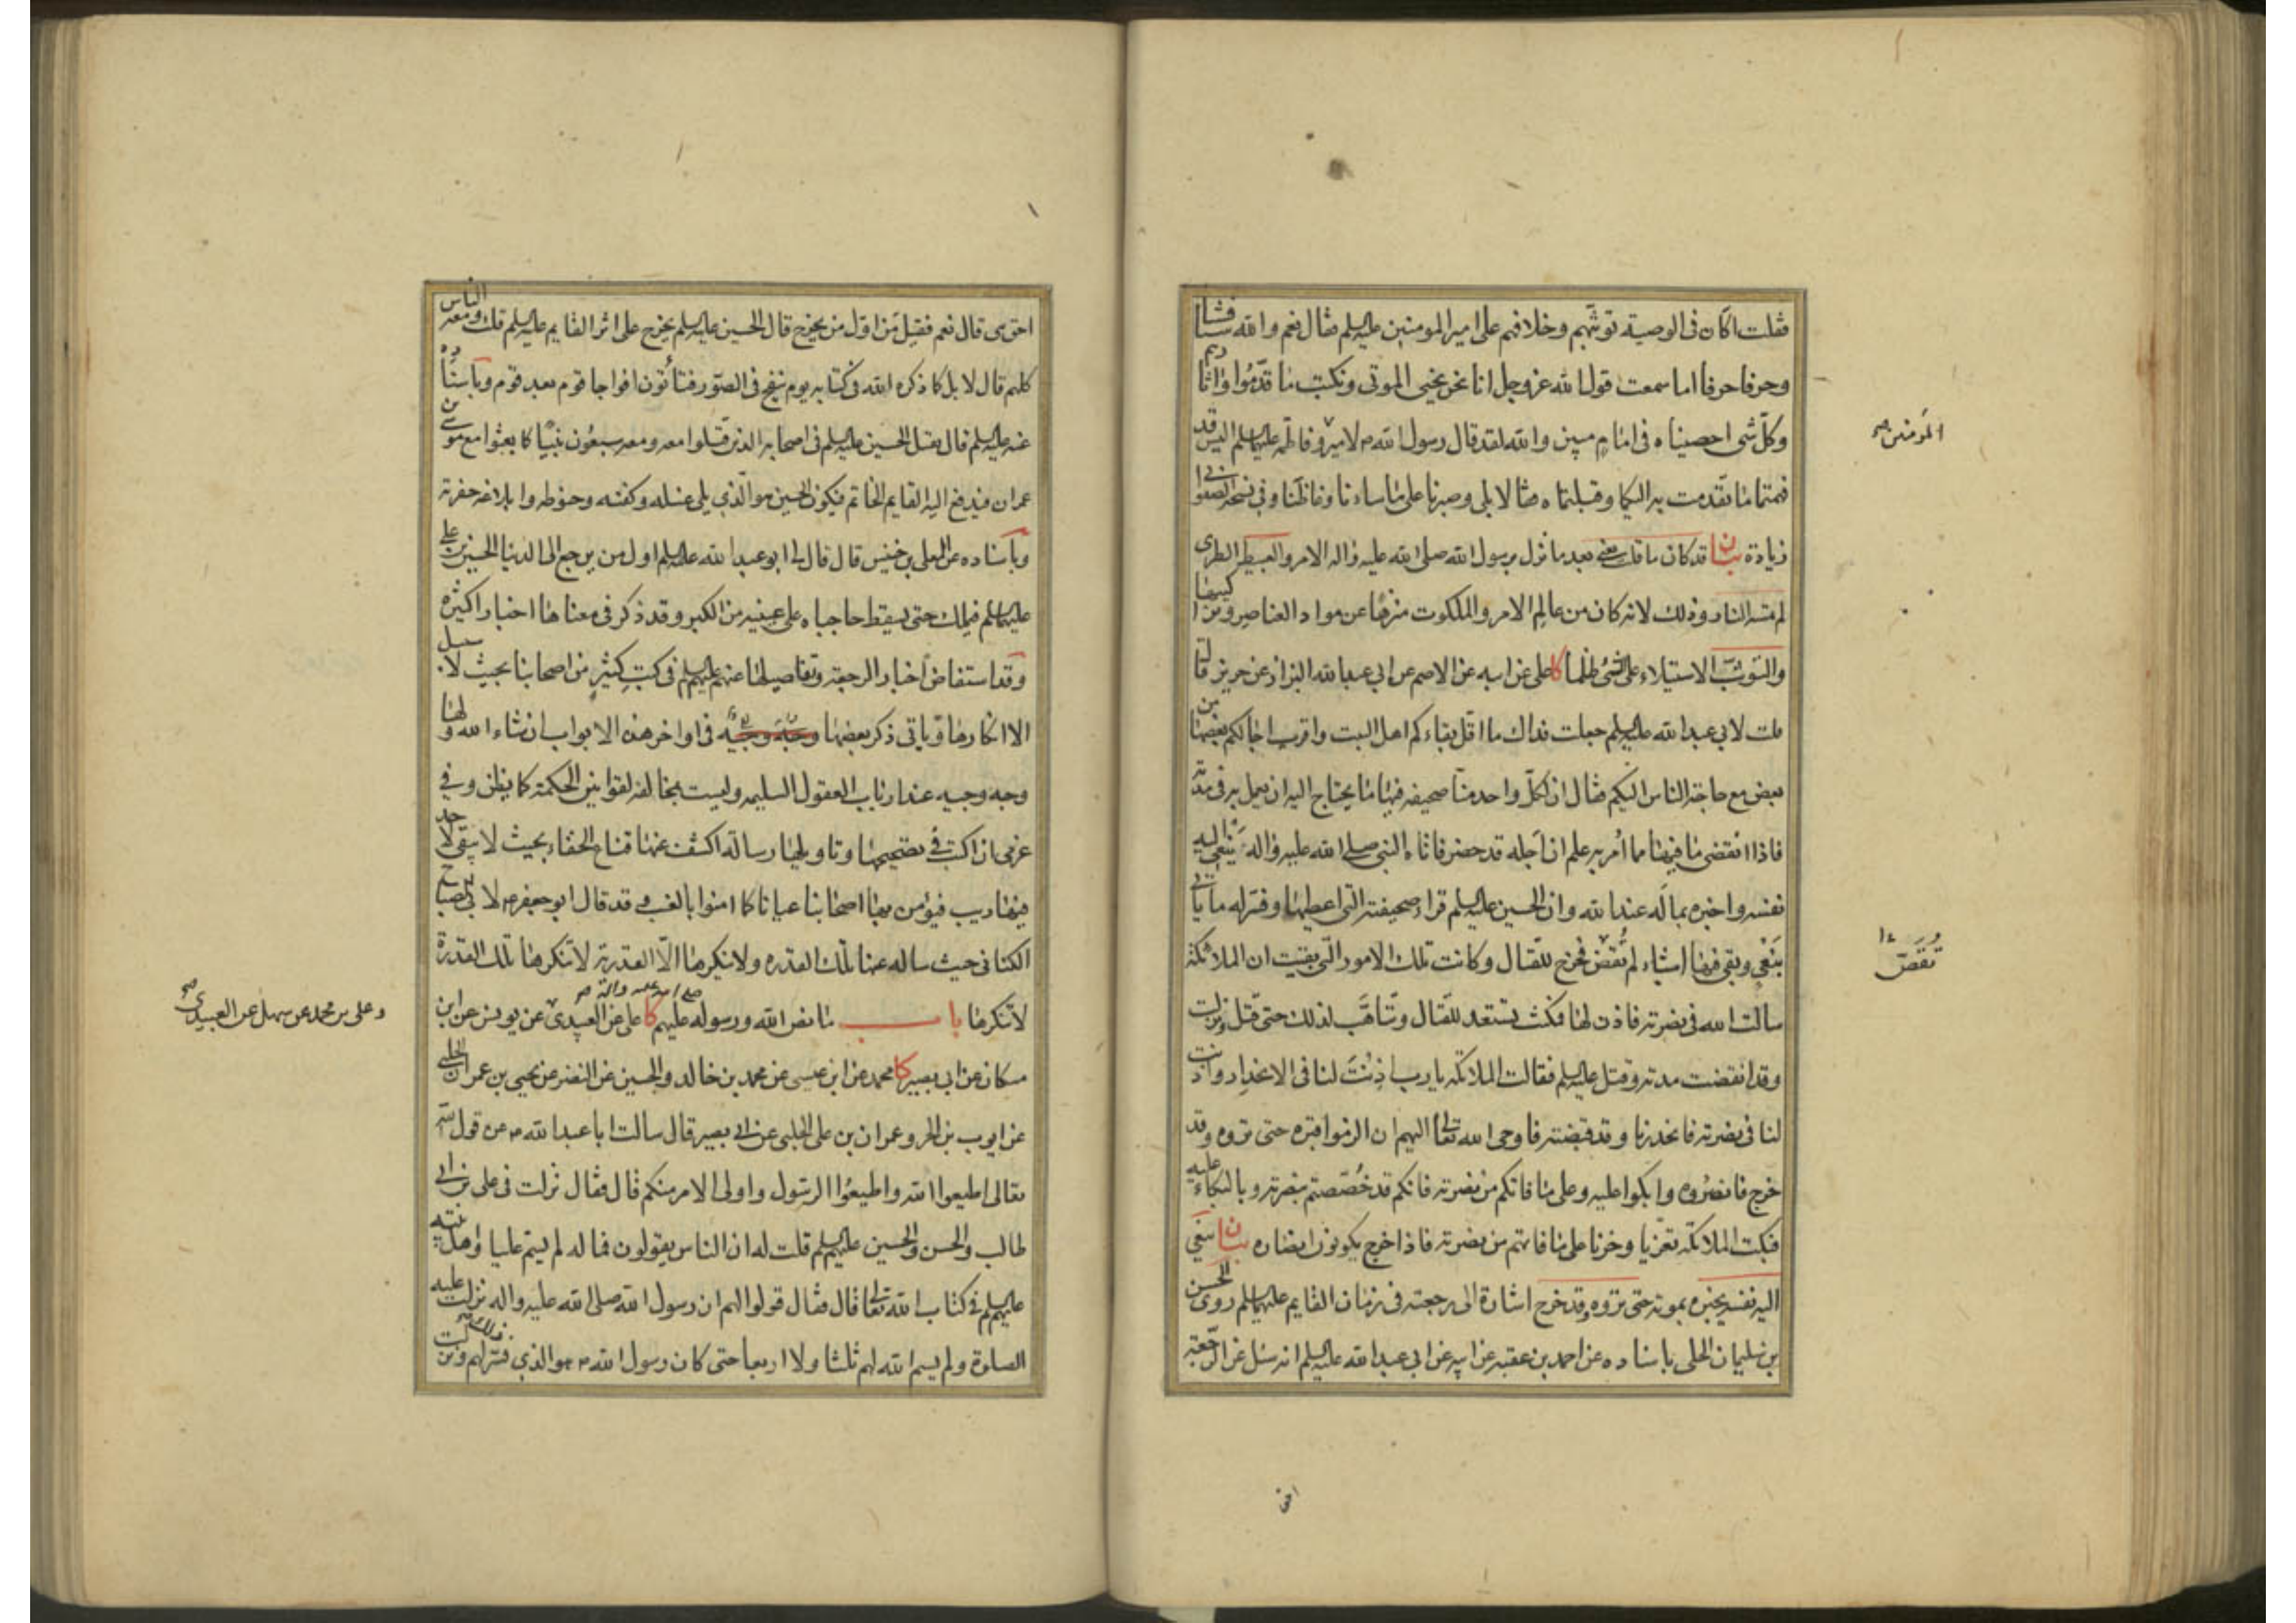 فقلت اكان فى الوصية توثبهم وخلافهم على امير المومنين عليه السلم فقال نعم والله شيئا فشيئا
وحرفا حرفا اما سمعت قول الله عز وجل انا نحن نحيى الموتى ونكتب ما قدموا واثارهم
وكل شى احصيناه فى امام مبين والله لقد قال رسول الله ص لامير وفاطمة عليهما السلم اليس قد
المؤمنين صح
فهمتما ما تقدمت به اليكما وقبلتماه فقالا بلى وصبرنا على ما ساءنا وغاظنا وفى نسخة الصفوانى
زيادة بيان قد كان ما قلت يعنى بعد ما نزل برسول الله صلى الله عليه واله الامر
لم تمسه النار وذلك لانه كان من عالم الامر والملكوت منزها عن مواد العناصر وتركيبها
والتوثب الاستيلاء على الشئ ظلما كا على عن ابيه عن الاصم عن ابى عبد الله البزاز عن حريز قال
قلت لابى عبد الله عليه السلم جعلت فداك ما اقل بقاءكم اهل البيت واقرب اجالكم بعضها من
بعض مع حاجة الناس اليكم فقال ان لكل واحد منا صحيفة فيها ما يحتاج اليه ان يعمل به فى مدته
فاذا انقضى ما فيها مما أمر به علم ان اجله قد حضر فاتاه النبى صلى الله عليه واله ينعى اليه
نفسه واخبره بما له عند الله وان الحسين عليه السلم قراء صحيفته التى اعطيها وفسر له ما ياتى
بنعى وبقى فيها اشياء لم تقض فخرج للقتال وكانت تلك الامور التى بقيت ان الملائكة
تنقض
سالت الله فى نصرته فاذن لها فمكثت تستعد للقتال وتتاهب لذلك حتى قتل فنزلت
وقد انقضت مدته وقتل عليه السلم فقالت الملائكة يا رب اذنت لنا فى الانحدار واذنت
لنا فى نصرته فانحدرنا وقد قبضته فاوحى الله تعالى اليهم ان الزموا قبره حتى تروه وقد
خرج فانصروه وابكوا عليه وعلى ما فاتكم من نصرته فانكم قد خصصتم بنصرته وبالبكاء عليه
فبكت الملائكة تعزيا وحزنا على ما فاتهم من نصرته فاذا خرج يكونون انصاره بيان ينعى
اليه نفسه يخبره بموته حتى تروه وقد خرج اشارة الى رجعته فى زمان القايم عليهما السلم روى الحسن
بن سليمان الحلى باسناده عن احمد بن عقبة عن ابيه عن ابى عبد الله عليه السلم انه سئل عن الرجعة
احق
احق هى قال نعم فقيل من اول من يخرج قال الحسين عليه السلم يخرج على اثر القايم عليه السلم قلت ومعه الناس
كلهم قال لا بل كما ذكره الله فى كتابه يوم ينفخ فى الصور فتأتون افواجا قوم بعد قوم وباسناده
عنه عليه السلم قال يقبل الحسين عليه السلم فى اصحابه الذين قتلوا معه ومعه سبعون نبيا كما بعثوا مع موسى بن
عمران فيدفع اليه القايم الخاتم فيكون الحسين هو الذى يلى غسله وكفنه وحنوطه وابلاغه حفرته
وباسناده عن المعلى بن خنيس قال قال لى ابو عبد الله عليه السلم اول من يرجع الى الدنيا الحسين بن على
عليهما السلم فيملك حتى يسقط حاجباه على عينيه من الكبر وقد ذكر فى معناها اخبار اكثيره
وقد استفاض اخبار الرجعة وتفاصيلها عنهم عليهم السلم فى كتب كثير من اصحابنا بحيث لا سبيل
الا انكارها وياتى ذكر بعضها فى اواخر هذه الابواب ان شاء الله ولها
وجه وجيه عند ارباب العقول السليمه وليست بمخالفة لقوانين الحكمة كما يظن وفى
عزمى ان اكتب فى تصحيحها وتاويلها رسالة اكشف عنها قناع الخفاء بحيث لا يبقى لاحد
فيها ريب فيؤمن بها اصحابنا عيانا كما امنوا بالغيب وقد قال ابو جعفر ع لابى الصباح
الكنانى حيث ساله عنها تلك القدره ولا ينكرها الا القدرية لا تنكرها تلك القدرة
لا تنكرها باب ما نص الله ورسوله عليهم كا على عن العبيدى عن يونس عن ابن
صلى الله عليه واله صح
وعلى بن محمد عن سهل عن العبيدى صح
مسكان عن ابى بصير كا محمد عن ابن عيسى عن محمد بن خالد والحسين عن النضر عن يحيى بن عمران الحلبى
عن ايوب بن الحر وعمران بن على الحلبى عن ابى بصير قال سالت ابا عبد الله ع عن قول الله
تعالى اطيعوا الله واطيعوا الرسول واولى الامر منكم قال فقال نزلت فى على بن ابى
طالب والحسن والحسين عليهم السلم قلت له ان الناس يقولون فما له لم يسم عليا واهل بيته
عليهم السلم فى كتاب الله تعالى قال فقال قولوا لهم ان رسول الله صلى الله عليه واله نزلت عليه
الصلوة ولم يسم الله لهم ثلثا ولا اربعا حتى كان رسول الله ص هو الذى فسر لهم ونزلت